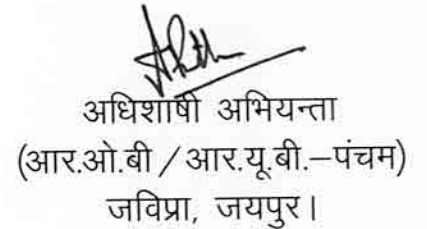 अधिशाषी अभियन्ता
(आर.ओ.बी / आर.यू.बी.–पंचम)
जविप्रा, जयपुर।